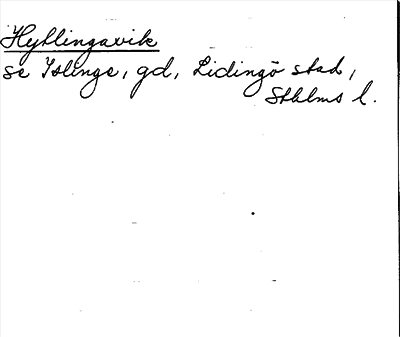 Hyttingavik
se Islinge, gd, Lidingö stad,
Sthlms l.